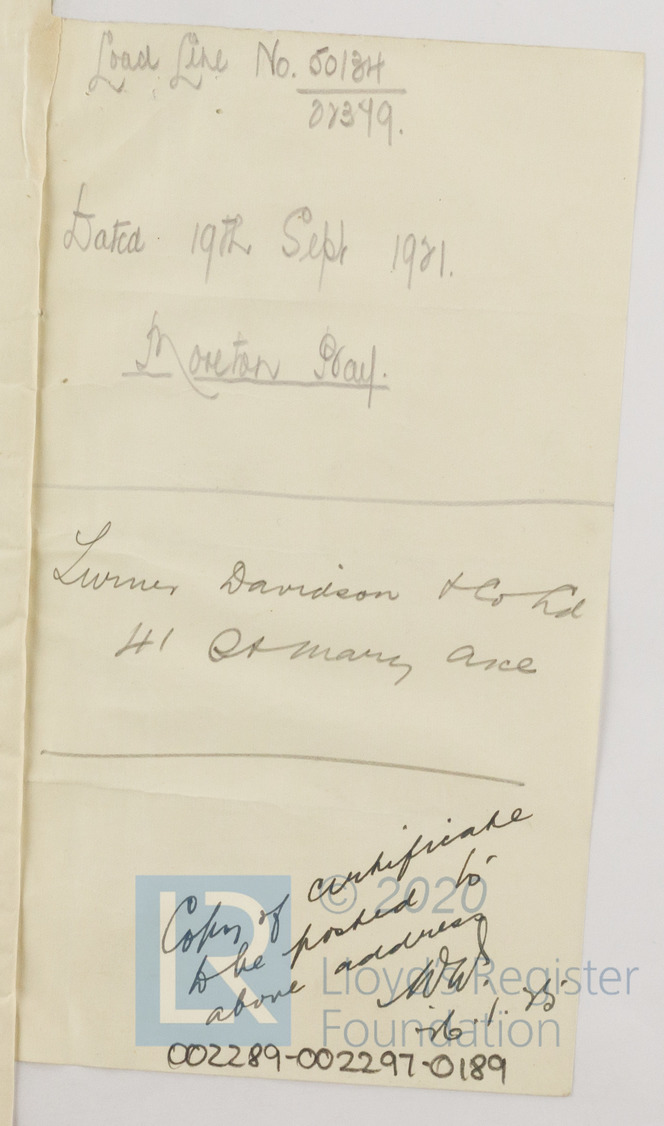 Load Line No. 50134
27349.
Dated 19th Sept 1921.
Moreton Bay.
Turner Davidson & Co Ld
41 St Mary Axe
Copy of certificate
to be posted to
above address
WW.
26.1.25
LR
© 2020
Lloyd's Register
Foundation
002289-002297-0189